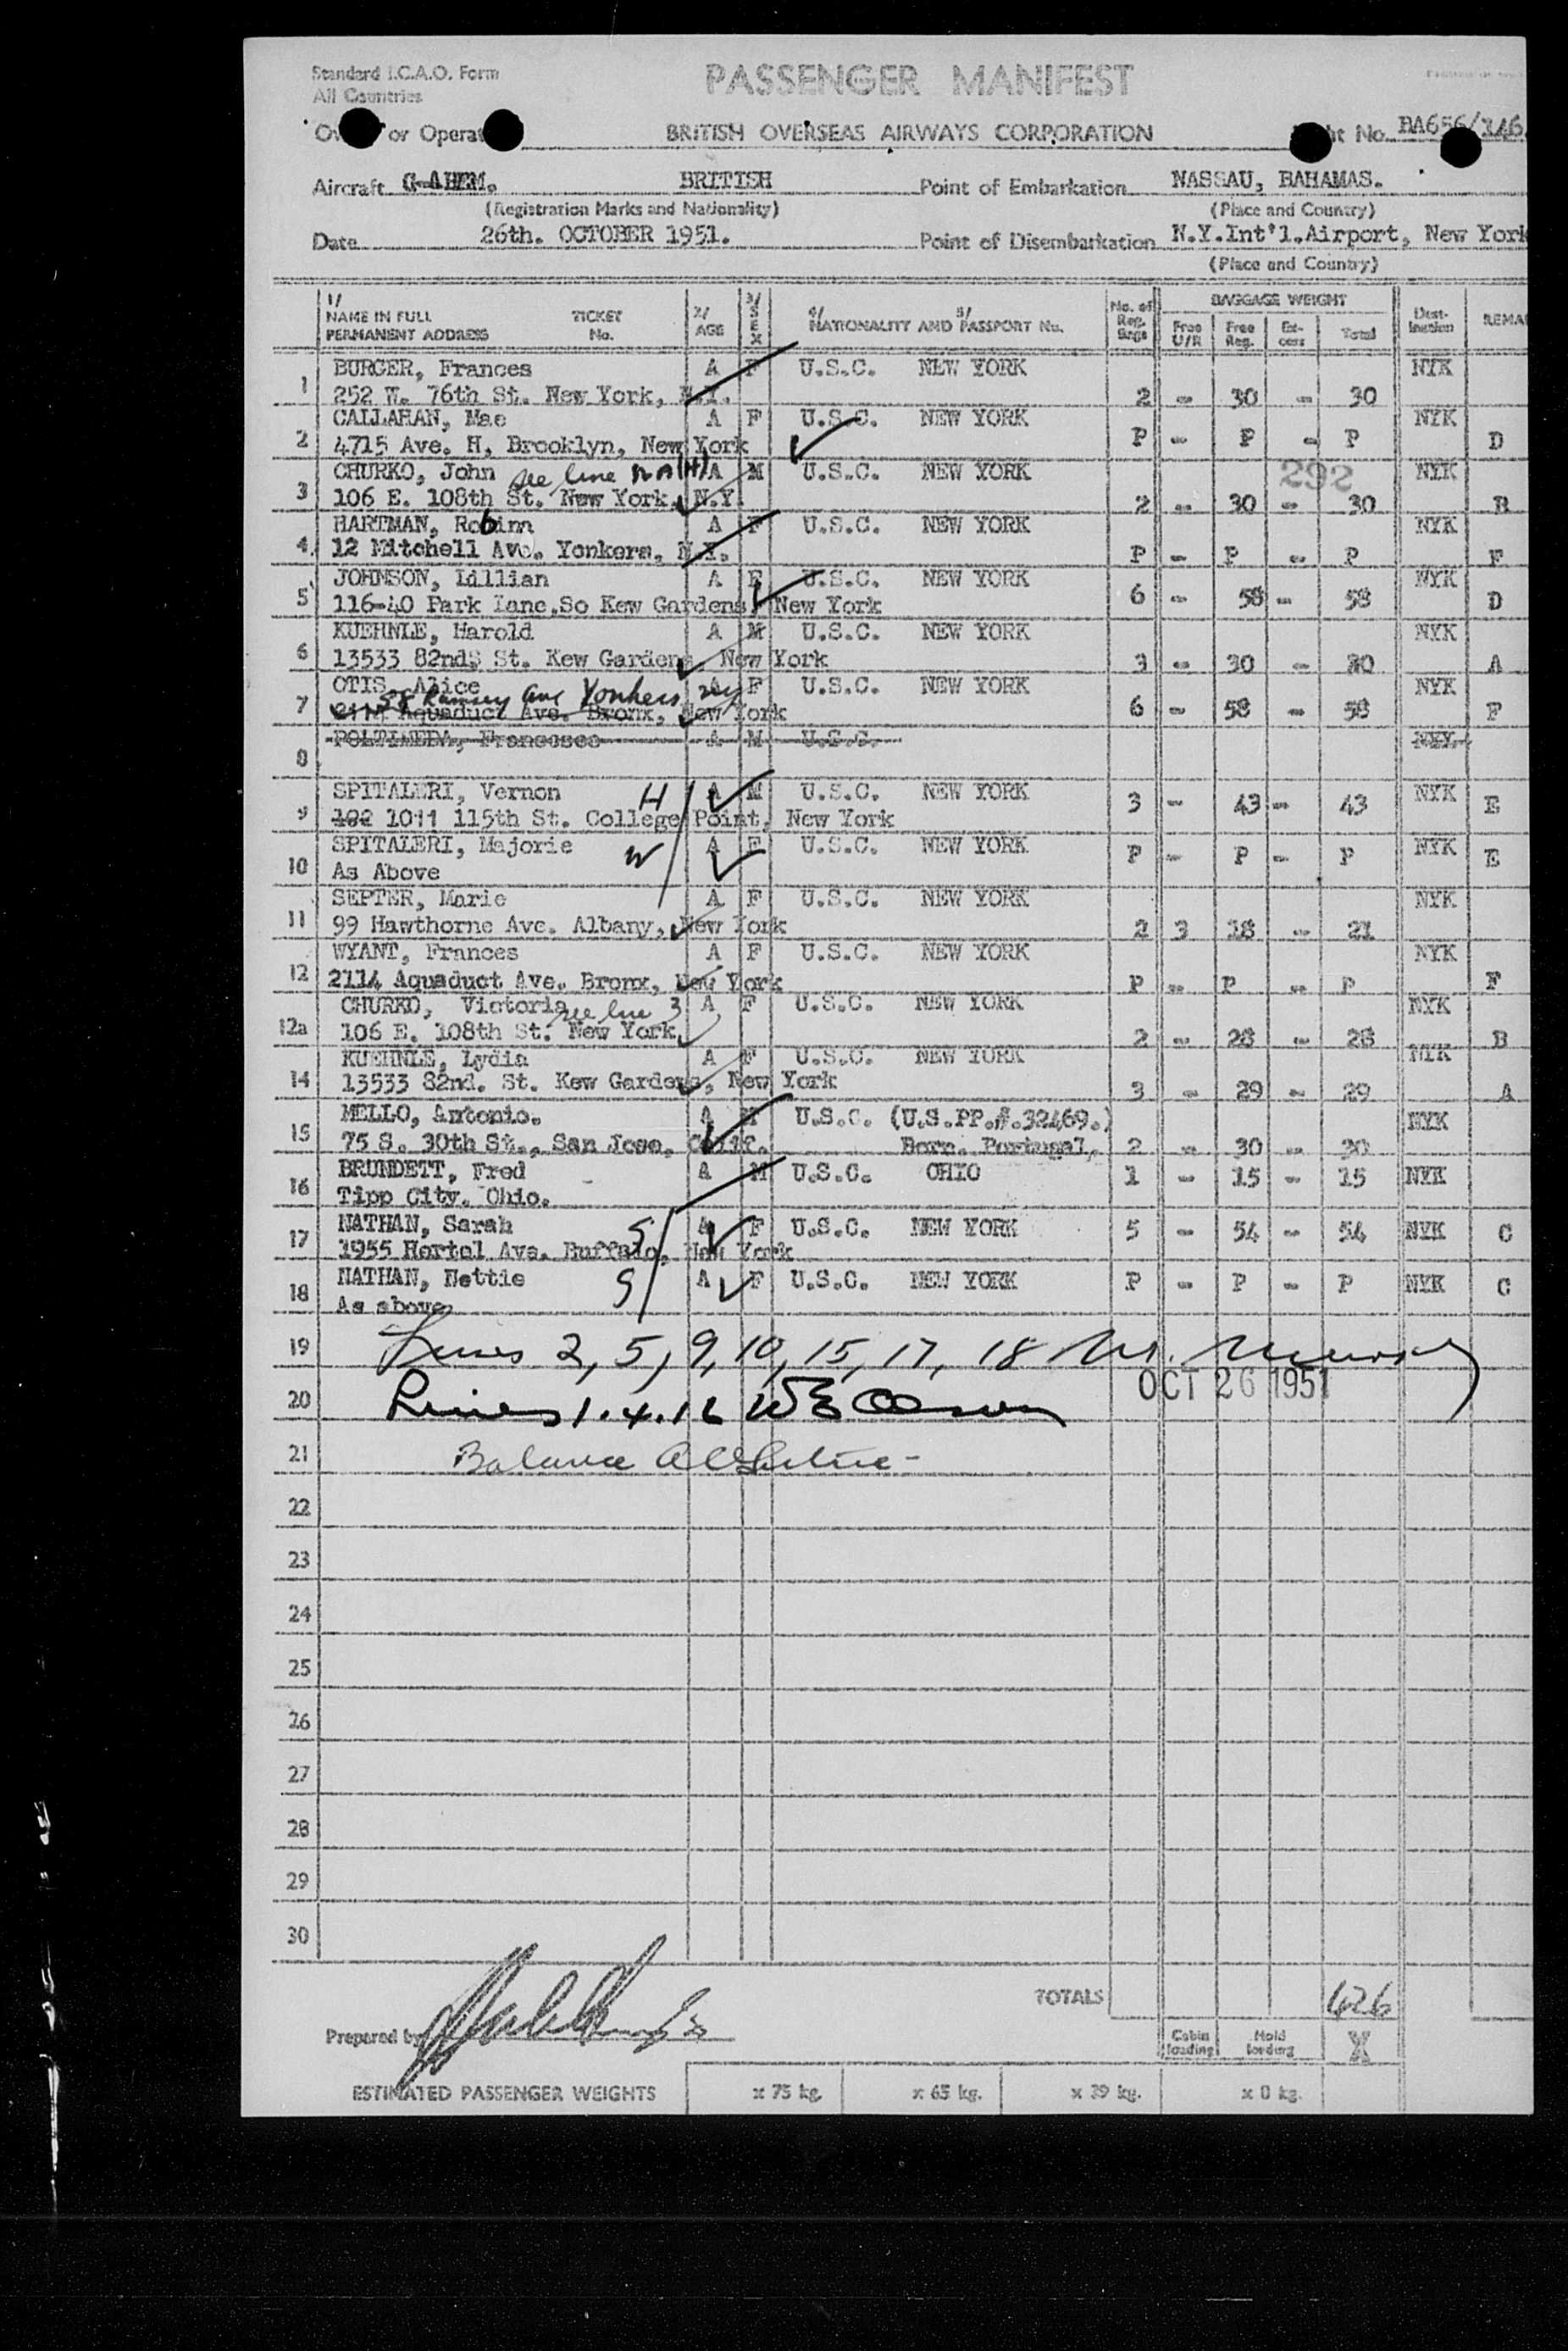 Standard I.C.A.O. Form
All Countries
PASSENGER MANIFEST
or Operat BRITISH OVERSEAS AIRWAYS CORPORATION ht No. BA656/146
Aircraft G-AHEM. BRITISH Point of Embarkation NASSAU, BAHAMAS.
(Registration Marks and Nationality) (Place and Country)
Date 26th. OCTOBER 1951. Point of Disembarkation N.Y.Int'l.Airport, New York
(Place and Country)
1/ NAME IN FULL PERMANENT ADDRESS TICKET No. 2/ AGE 3/ SEX 4/ NATIONALITY AND PASSPORT No. 5/ No. of Reg. Bags BAGGAGE WEIGHT Free U/R Free Reg. Ex-cess Total Dest-ination REMA
1 BURGER, Frances A F U.S.C. NEW YORK NYK
252 W. 76th St. New York, N.Y. 2 - 30 - 30
2 CALLAHAN, Mae A F U.S.C. NEW YORK NYK
4715 Ave. H, Brooklyn, New York P - P - P D
3 CHURKO, John see line 12A (H) A M U.S.C. NEW YORK 292 NYK
106 E. 108th St. New York, N.Y. 2 - 30 - 30 B
4 HARTMAN, Robinn A F U.S.C. NEW YORK NYK
12 Mitchell Ave. Yonkers, N.Y. P - P - P F
5 JOHNSON, Lillian A F U.S.C. NEW YORK NYK
116-40 Park Lane,So Kew Gardens, New York 6 - 58 - 58 D
6 KUEHNLE, Harold A M U.S.C. NEW YORK NYK
13533 82nds St. Kew Gardens, New York 3 - 30 - 30 A
7 OTIS, Alice A F U.S.C. NEW YORK NYK
58 Ramsey Ave Yonkers NY
2114 Aquaduct Ave. Bronx, New York 6 - 58 - 58 F
8 Francesco A M U.S.C. NYK
9 SPITALERI, Vernon H A M U.S.C. NEW YORK 3 - 43 - 43 NYK E
102 1011 115th St. College Point, New York
10 SPITALERI, Majorie W A F U.S.C. NEW YORK P - P - P NYK E
As Above
11 SEPTER, Marie A F U.S.C. NEW YORK NYK
99 Hawthorne Ave. Albany, New York 2 3 18 - 21
12 WYANT, Frances A F U.S.C. NEW YORK NYK
2114 Aquaduct Ave. Bronx, New York P - P - P F
12a CHURKO, Victoria see line 3 A F U.S.C. NEW YORK NYK
106 E. 108th St. New York. 2 - 28 - 28 B
14 KUEHNLE, Lydia A F U.S.C. NEW YORK NYK
13533 82nd. St. Kew Gardens, New York 3 - 29 - 29 A
15 MELLO, Antonio. A M U.S.C. (U.S.PP.#.32469.) NYK
75 S. 30th St., San Jose, Calif. Born. Portugal, 2 - 30 - 30
16 BRUNDETT, Fred A M U.S.C. OHIO 1 - 15 - 15 NYK
Tipp City. Ohio.
17 NATHAN, Sarah S A F U.S.C. NEW YORK 5 - 54 - 54 NYK C
1955 Hertel Ave. Buffalo, New York
18 NATHAN, Nettie S A F U.S.C. NEW YORK P - P - P NYK C
As above
19 Lines 2, 5, 9, 10, 15, 17, 18 M.
OCT 26 1951
20 Lines 1.4.16
21 Balance
22
23
24
25
26
27
28
29
30
TOTALS 426
Prepared by Cabin loading Hold loading X
ESTIMATED PASSENGER WEIGHTS x 75 kg. x 65 kg. x 39 kg. x 0 kg.